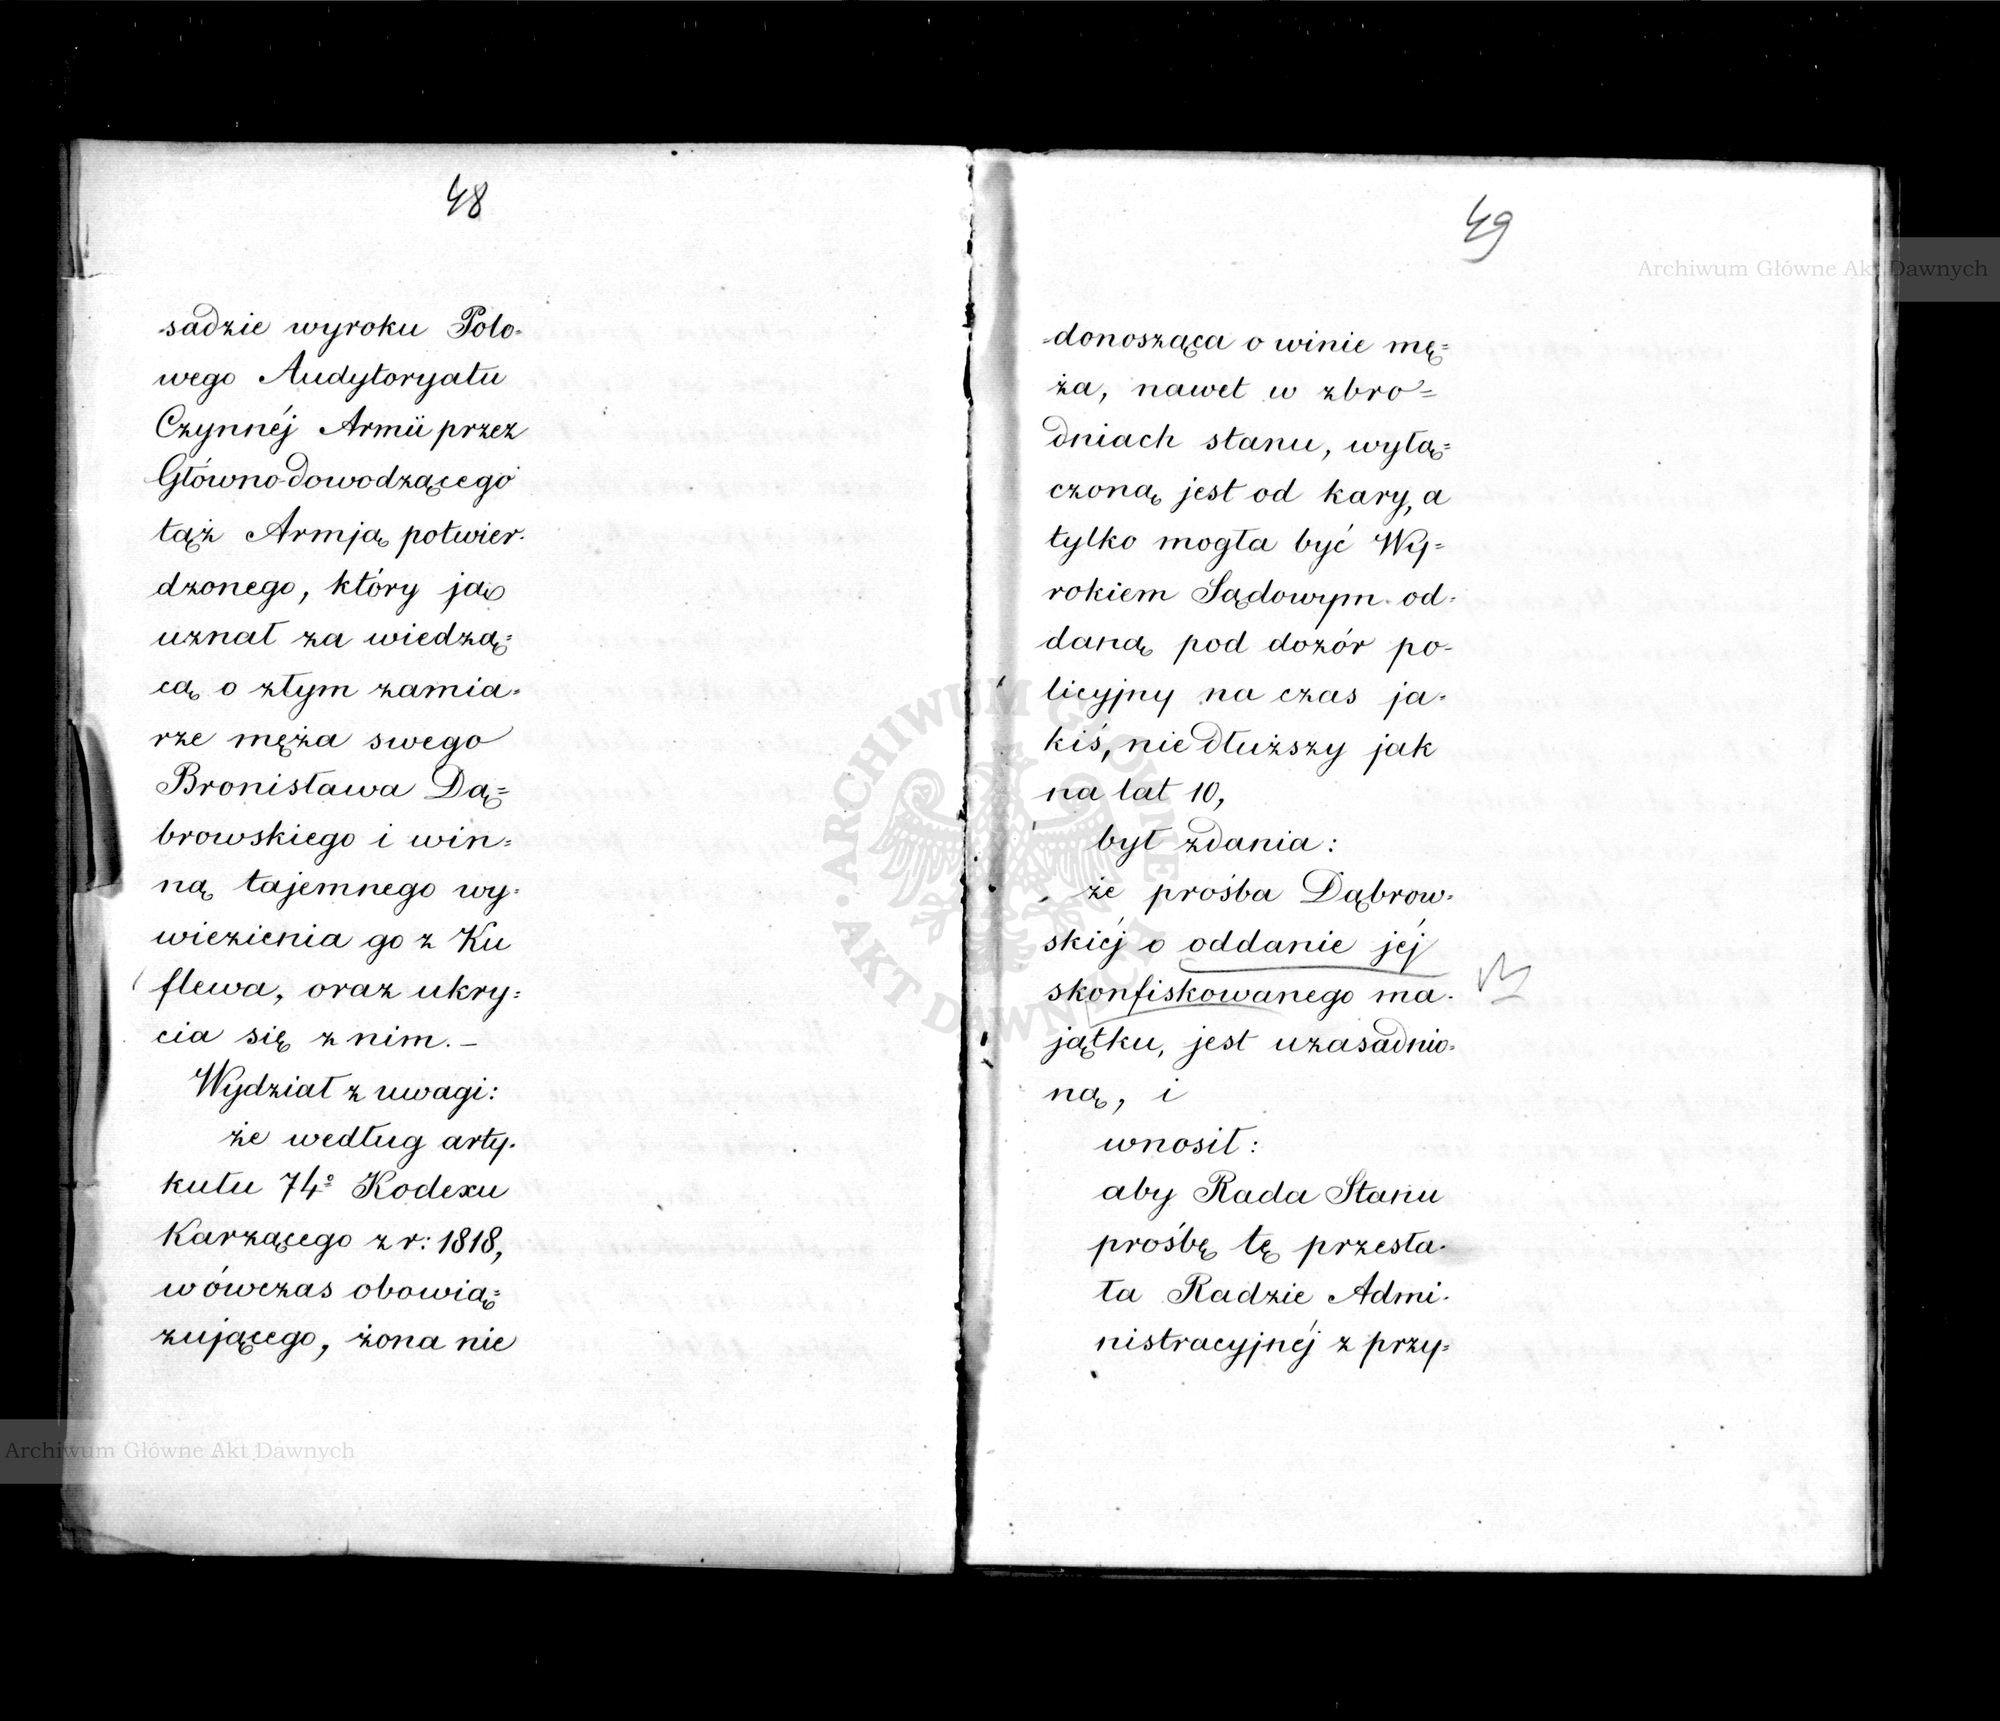 48
sadzie wyroku Polo=
wego Audytoryatu
Czynnéj Armii przez
Główno dowodzącego
tąż Armją potwier-
dzonego, który ją
uznał za wiedzą=
cą o złym zamia-
rze męża swego
Bronisława Dą=
browskiego i win-
ną tajemnego wy-
wiezienia go z Ku
flewa, oraz ukry-
cia się z nim. —
Wydział z uwagi:
że według arty-
kułu 74º Kodexu
Karzącego z r: 1818,
wówczas obowią=
zującego, żona nie
49
donosząca o winie mę=
ża, nawet w zbro=
dniach stanu, wyłą=
czoną jest od kary, a
tylko mogła być Wy=
rokiem Sądowym od-
daną pod dozór po-
licyjny na czas ja-
kiś, nie dłuższy jak
na lat 10,
był zdania:
że prośba Dąbrow-
skiéj o oddanie jéj
skonfiskowanego ma-
jątku, jest uzasadnio-
ną, i
wnosił:
aby Rada Stanu
prośbę tę przesła-
ła Radzie Admi-
nistracyjnéj z przy=
Archiwum Główne Akt Dawnych
Archiwum Główne Akt Dawnych
ARCHIWUM GŁÓWNE AKT DAWNYCH